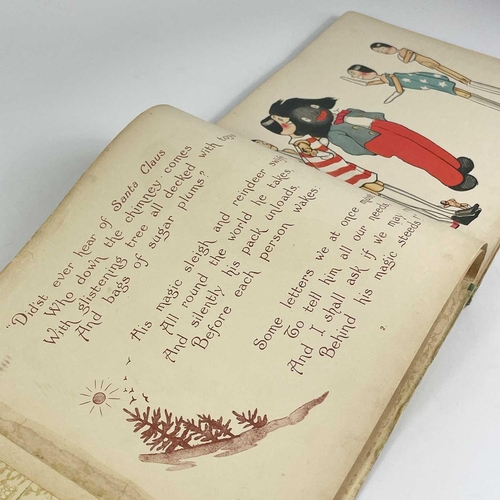 "Did'st ever hear of Santa Claus
Who down the chimney comes
With glistening tree all decked with toys
And bags of sugar plums?
His magic sleigh and reindeer
All round the world he takes,
And silently his pack unloads,
Before each person wakes.
Some letters we at once
To tell him all our needs,
And I shall ask if we may
Behind his magic steeds"
2